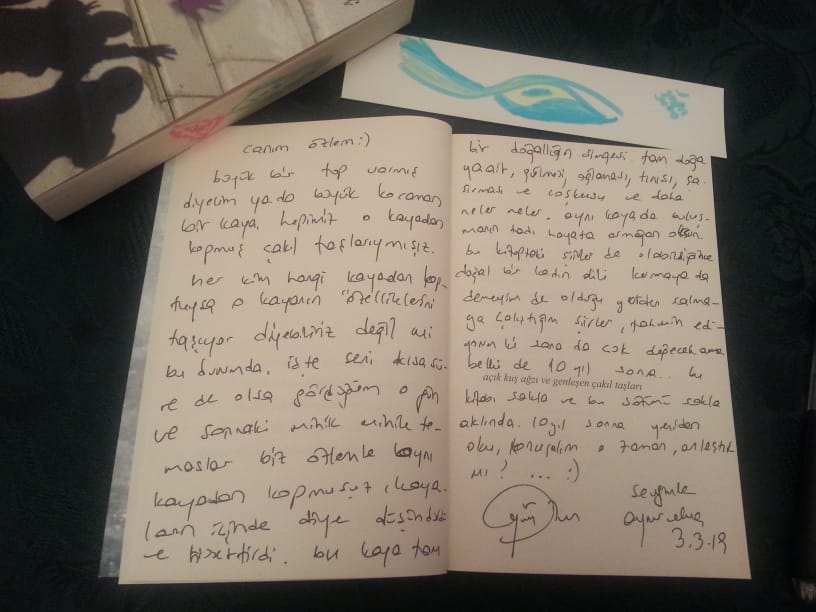 canım özlem:)
büyük bir top varmış
diyelim ya da büyük kocaman
bir kaya, hepimiz o kayadan
kopmuş çakıl taşlarıymışız.
her kim hangi kayadan kop-
tuysa o kayanın özelliklerini
taşıyor diyebiliriz değil mi
bu durumda, işte seni kısa sü-
re de olsa gördüğüm o gün
ve sonraki minik minik te-
maslar biz özlemle aynı
kayadan kopmuşuz, kaya-
ların içinde diye düşündürdü
ve hissettirdi. bu kaya tam
bir doğallığın simgesi. tam doğa
yaşait, gülmesi, ağlaması, tınısı, şa-
şırması ve coşkusu ve daha
neler neler. aynı kayada buluş-
manın tadı hayata armağan olsun.
bu kitaptaki şiirler de olabildiğince
doğal bir kadın dili kurmaya da
deneyim de olduğu yerden salma-
ya çalıştığım şiirler, tahmin edi-
yorum ki sana da çok değecek ama
belki de 10 yıl sonra.. bu
açık kuş ağzı ve genleşen çakıl taşları
kitabı sakla ve bu sözümü sakla
aklında. 10 yıl sonra yeniden
oku, konuşalım o zaman, anlaştık
mı? ... :)
sevgimle
3.3.19